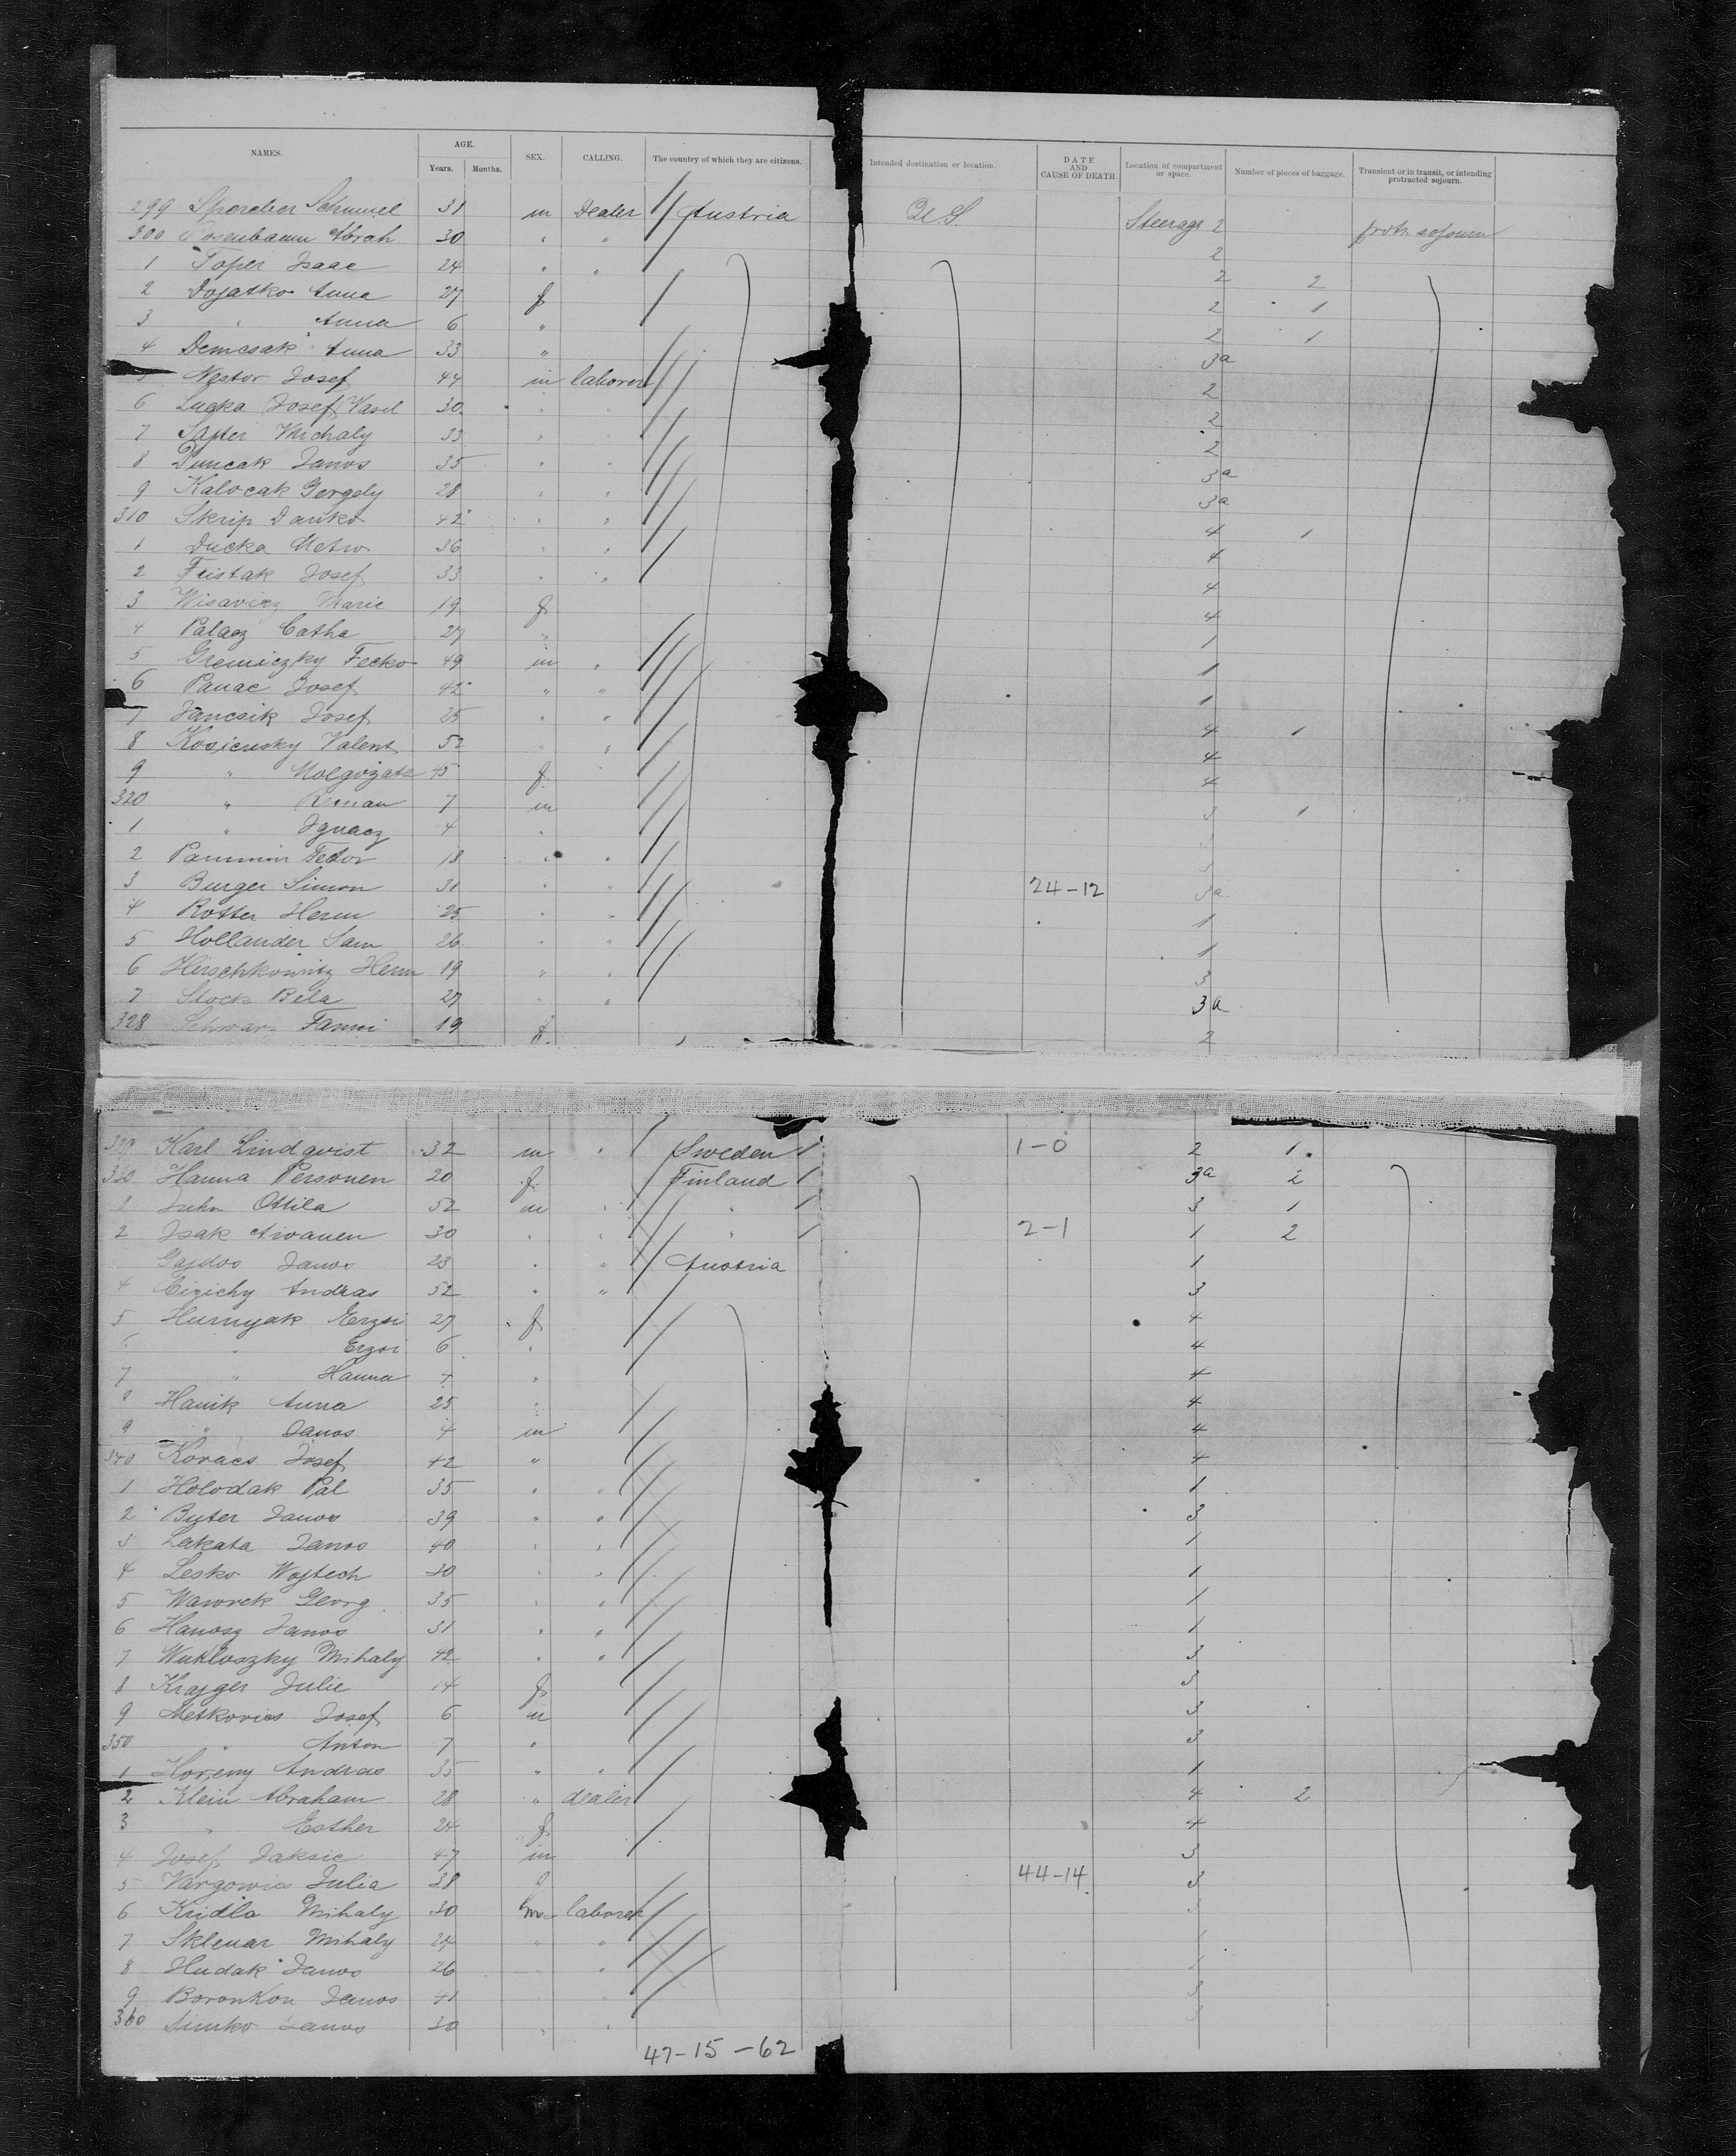 NAMES. AGE. SEX. CALLING. The country of which they are citizens. Intended destination or location. DATE AND CAUSE OF DEATH. Location of compartment or space. Number of pieces of baggage. Transient or in transit, or intending protracted sojourn.
Years. Months.
299 Sperber Schmuel 31 m Dealer Austria U.S. Steerage 2 protr. sojourn
300 Rosenbaum Abrah 30 " " 2
1 Toper Isaac 24 " " 2 2
2 Dojatko Anna 27 f 2 1
3 " Anna 6 " 2 1
4 Demcsak Anna 33 " 3a
5 Nestor Josef 44 m laborer 2
6 Lucka Josef Vasil 30 " " 2
7 Sajter Michaly 33 " " 2
8 Duncak Janos 35 " " 3a
9 Kalocak Gergely 28 " " 3a
310 Skrip Danko 42 " " 4 1
1 Ducka Metro 36 " " 4
2 Fristak Josef 33 " " 4
3 Wisavicz Marie 19 f 4
4 Palacz Catha 27 " 1
5 Gremiczky Fecko 49 m " 1
6 Panac Josef 42 " " 1
7 Jancsik Josef 25 " " 4 1
8 Kosiensky Valent 52 " " 4
9 " Malgozata 45 f 4
320 " Roman 7 m 3 1
1 " Ignacz 4 "
2 Pammin Fedor 18 " "
3 Burger Simon 31 " " 24-12 3a
4 Rotter Herm 25 " " 1
5 Hollander Sam 26 " " 1
6 Hirschkowitz Herm 19 " " 3
7 Stock Bela 27 " " 3a
328 Schwarz Fanni 19 f. 2
329 Karl Lindqvist 32 m " Sweden 1-0 2 1
330 Hanna Personen 20 f. Finland 3a 2
1 Juhn Ottila 52 m " " 3 1
2 Isak Aivanen 30 " " " 2-1 1 2
Gajdos Janos 23 " " Austria 1
4 Cizichy Andras 52 " " 3
5 Hurnyak Erzsi 27 f 4
6 " Erzsi 6 " 4
7 " Hanna 4 " 4
8 Hanik Anna 25 " 4
9 " Janos 4 m 4
340 Kovacs Josef 42 " 4
1 Holodak Pal 35 " " 1
2 Buter Janos 39 " " 3
3 Lakata Janos 40 " " 1
4 Lesko Wojtech 30 " " 1
5 Wawrek Georg 35 " " 1
6 Hanosz Janos 31 " " 1
7 Wukloszky Mihaly 42 " " 3
8 Krajger Julie 14 f 3
9 Metkovics Josef 6 m 3
350 " Anton 7 " 3
1 Horjeny Andras 35 " " 1
2 Klein Abraham 28 " dealer 4 2
3 " Esther 24 f 4
4 Josef Jaksic 47 m 3
5 Vargowic Julia 38 f 44-14 3
6 Kridlo Mihaly 30 m laborer
7 Sklenar Mihaly 24 " "
8 Hudak Janos 26 " 1
9 Boronkon Janos 41 3
360 Dunko Janos 30 " " 3
47-15-62